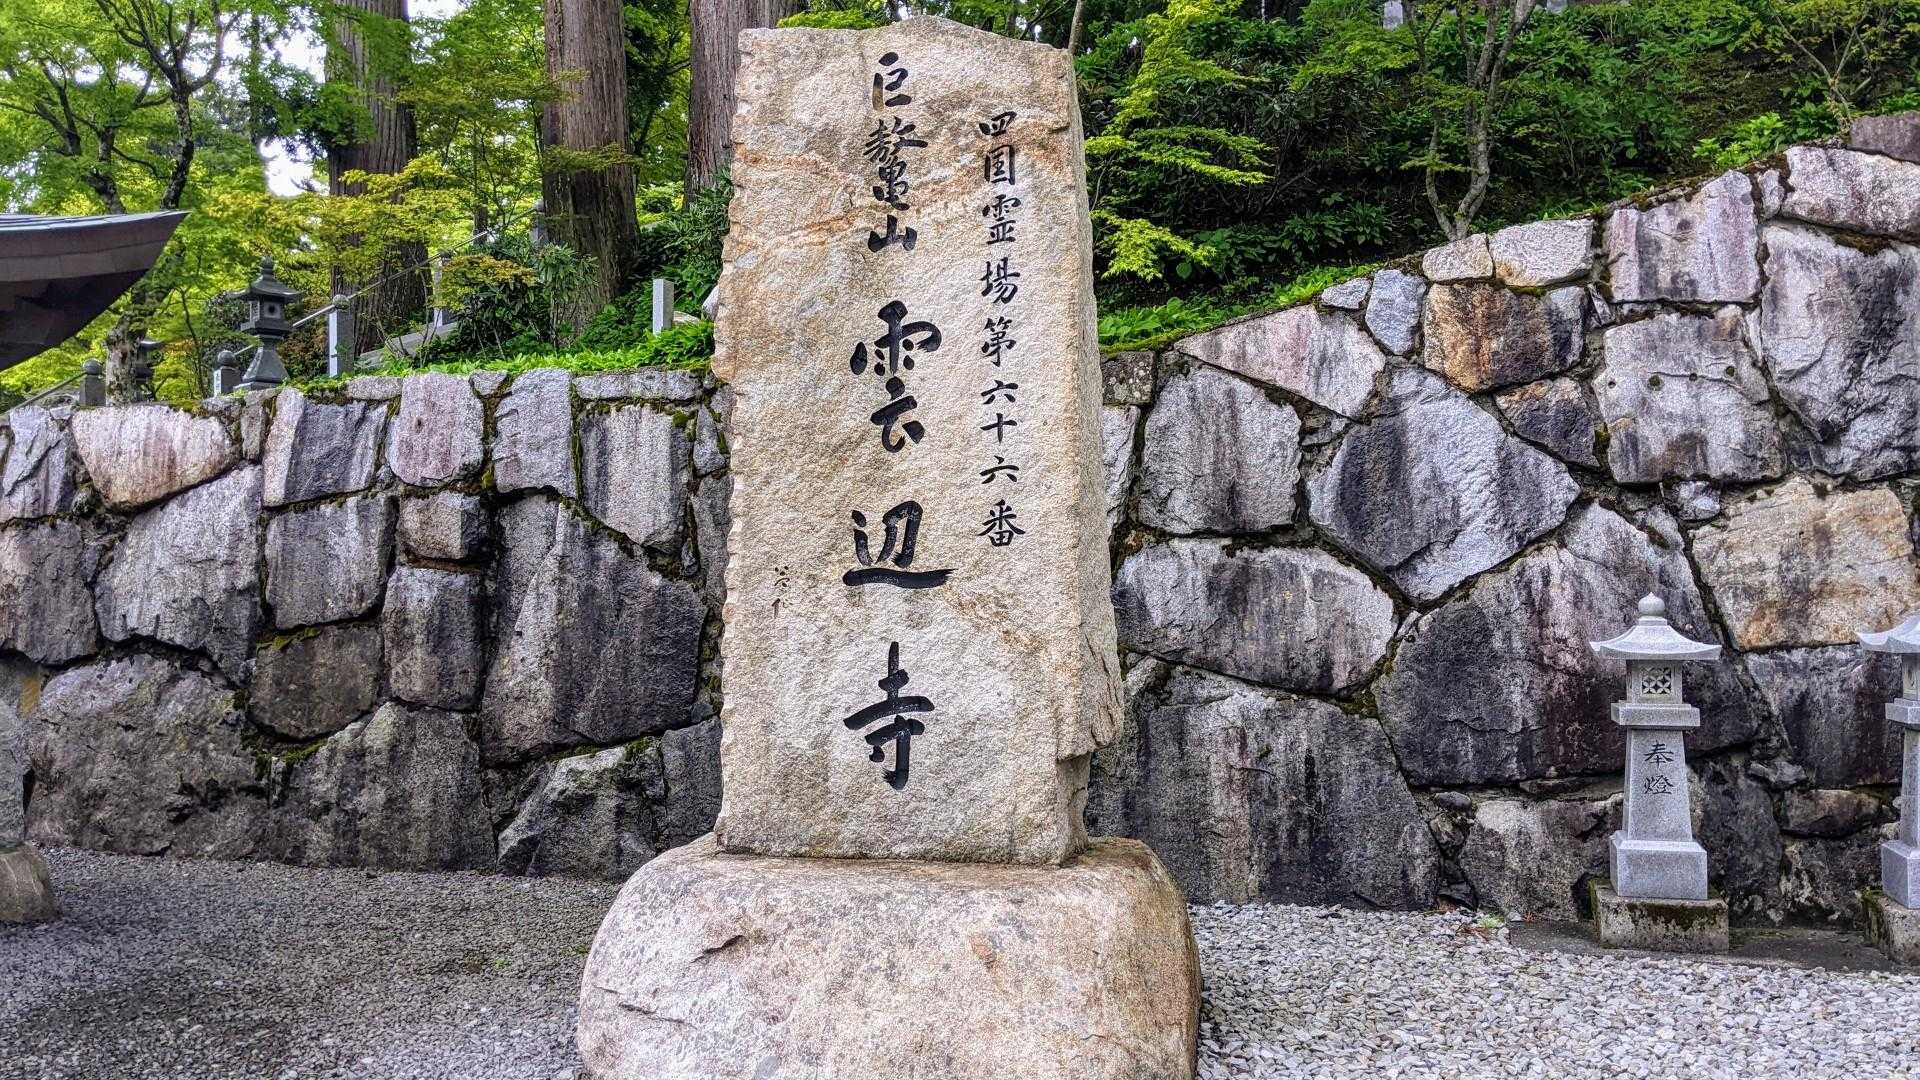 四国霊場第六十六番
巨鼇山 雲辺寺
奉燈